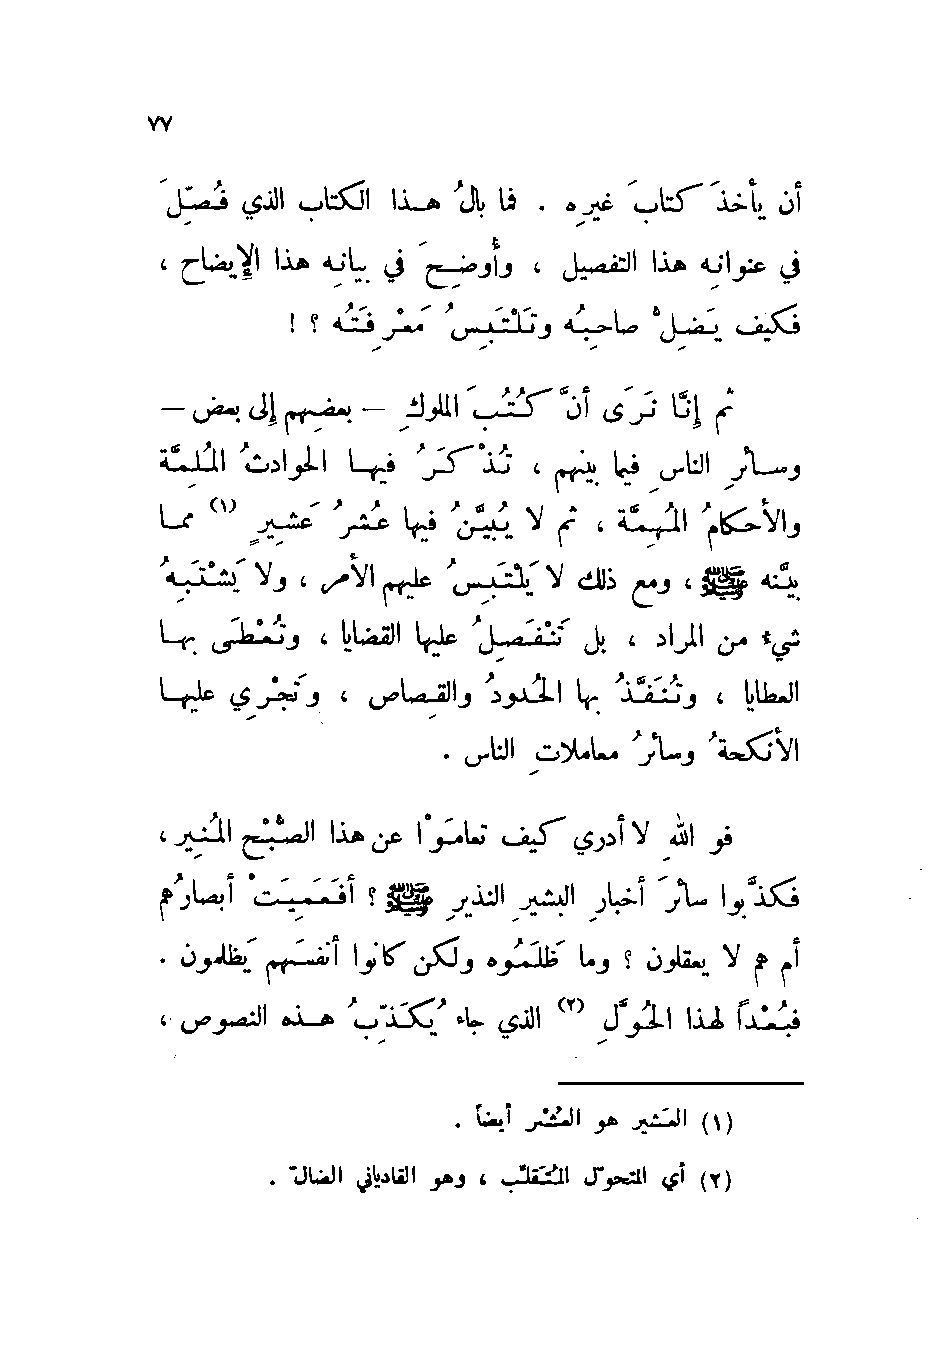 ٧٧
أن يأخذَ كتابَ غيرِه . فما بالُ هـذا الكتاب الذي فُـصِّـلَ
في عنوانِه هذا التفصيل ، وأُوضِـحَ في بيانِه هذا الإِيضاح ،
فكيف يَـضِـلْ صاحِبُه وتَـلْتَـبِـسُ مَعْـرِفَـتُه ؟ !
ثم إنّا نَـرَى أنَّ كُـتُـبَ الملوكِ – بعضِهم إلى بعض –
وسـائرِ الناسِ فيما بينهم ، تُـذْكَـرُ فيهـا الحوادثُ المُـلِمَّة
والأحكامُ المُـهِمَّة ، ثم لا يُـبـيَّـنُ فيها عُـشْرُ عَـشِـيرٍ (١) ممـا
بيَّنه ﷺ ، ومع ذلك لا يَلْتَبِـسُ عليهم الأمر ، ولا يَشْتَبِـهُ
شيء من المرادِ ، بل تَنْفَـصِـلُ عليها القضايا ، وتُـعْـطَى بهـا
العطايا ، وتُـنَـفَّـذُ بها الحُـدودُ والقِـصاص ، وتَجْـرِي عليهـا
الأنكحةُ وسائرُ معاملاتِ الناس .
فو اللهِ لا أدري كيف تعامَـوْا عن هذا الصُّبْـحِ المُـنِـير ،
فكذَّبوا سائرَ أخبارِ البشيرِ النذيرِ ﷺ ؟ أفَـعَـمِـيَـتْ أبصارُهم
أم هم لا يعقلون ؟ وما ظَلَمُوه ولكن كانوا أنفسَـهم يَظلمون .
فبُـعْـداً لهذا الحُـوَّلِ (٢) الذي جاء يُكَـذِّبُ هـذه النصوص ،
(١) العَـشير هو العُـشْر أيضاً .
(٢) أي المتحوّل المُـتَـقلّب ، وهو القادياني الضالّ .